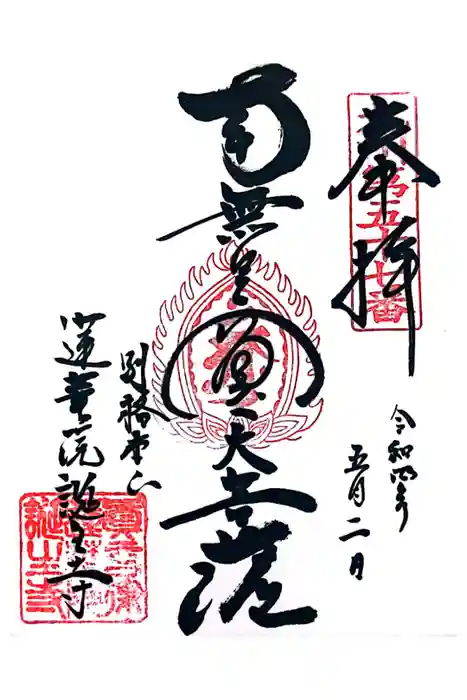 奉拝
第五十七番
令和四年
五月二日
南無皇円大菩薩
別格本山
蓮華院誕生寺